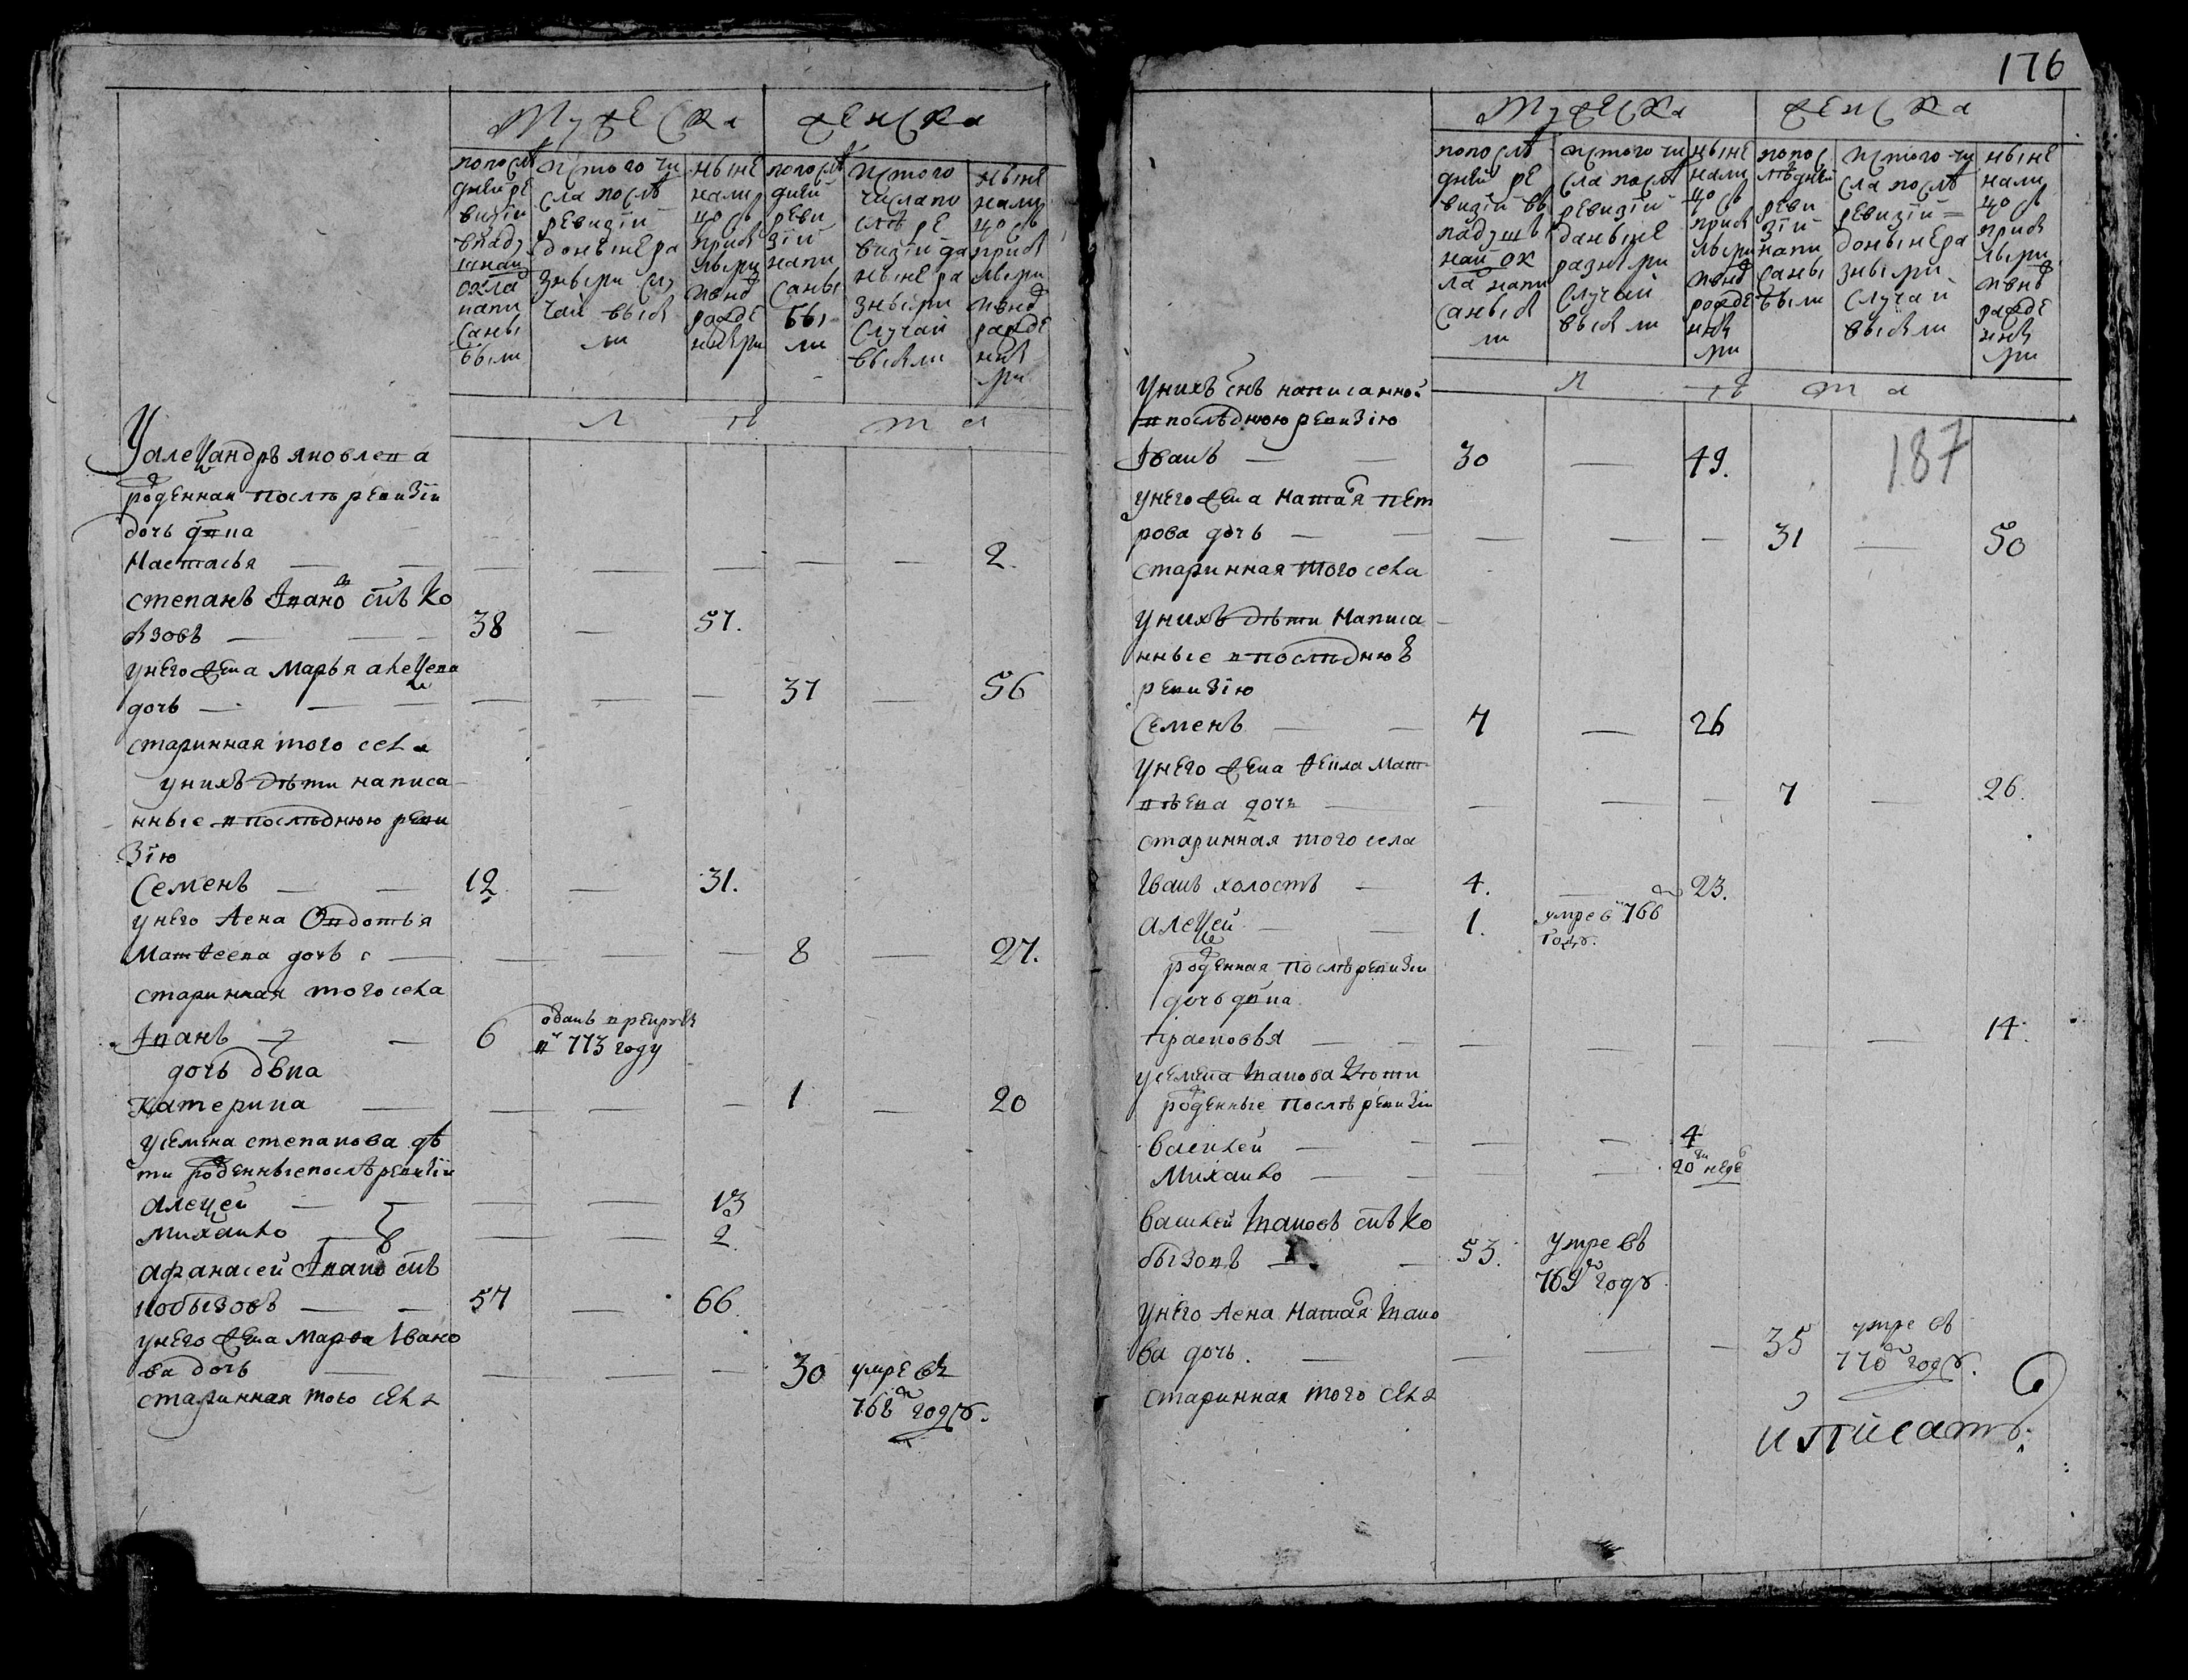 176
187
мужеска женска
попослѣ
дней ре
визiи
вподу
шнаи
окла
напи
саны
были
истого чи
сла послѣ
ревизiи
донынера
зными слу
чаи выбы
ли
ныне
нали
цо съ
прибы
лыми
рожде
попослѣ
дней
реви
зiи
напи
саны
бы
ли
истого
числапо
слѣ ре
визiи до
ныне ра
зными
случаи
выбыли
ныне
нали
цо съ
прибы
лыми
рожде
л ѣ т а
Уалеѯандръ яковлева
роденная послѣ ревизiи
дочь дѣвка
Настасья 2.
степанъ Ивановъ снъ ко
бзовъ 38 57.
унего жена Марья алеѯева
дочь 37 56
старинная того села
унихъ дѣти написа
нные в последнюю реви
зiю
Семенъ 12. 31.
унего жена Овдотья
Матѳеева дочь 8 27.
старинная того села
Иванъ 6 отданъ в рекруты
в 773 году
дочь дѣвка
Катерина 1 20
усемена степанова дѣ
ти роденные послѣ ревизiи
Алеѯей 13
михайло 2
афанасей Ивановъ снъ
кобызовъ 57 66.
унего жена Марѳа Ивано
ва дочь 30 умре въ
768 году.
старинная того села
мужеска женска
попослѣ
дней ре
визiи въ
подуш
най ок
ла напи
саныбы
ли
истого чи
сла послѣ
ревизiи
доныне
разными
случаи
выбыли
ныне
нали
цо съ
прибы
лыми
рожде
попос
лѣдней
реви
зiи
напи
саны
были
истого чи
сла послѣ
ревизiи
донынера
зными
случаи
выбыли
ныне
нали
цо съ
прибы
лыми
рожде
л ѣ т а
унихъ снъ написанной
в последнюю ревизiю
Иванъ 30 49.
унего жена Наталья пет
рова дочь 31 50
старинная того села
унихъ дѣти написа
нные в последнюю
ревизiю
Семенъ 7 26
унего жена Ѳекла Мат
вѣева дочь 7 26.
старинная того села
Иванъ холостъ 4. 23.
алеѯей 1. умре в 766
году.
роденная послѣ ревизiи
дочь дѣвка
Прасковья 14.
усемена Иванова дѣти
роденные послѣ ревизiи
василей 4
Михайло 20 недѣ
василей Ивановъ снъ ко
бызовъ 53. умре въ
769 году.
унего жена Наталья Ивано
ва дочь 35 умре въ
770 году.
старинная того села
и писать